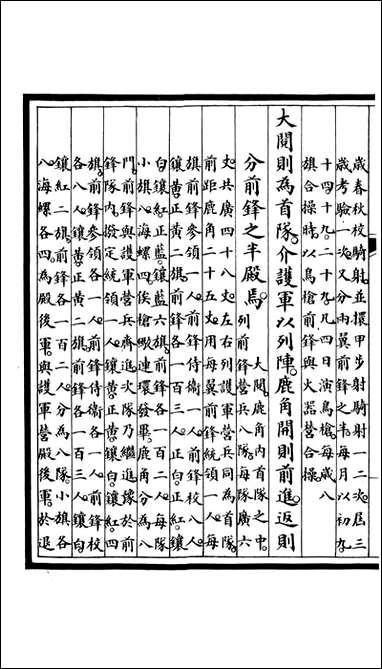 歲春秋校騎射並擐甲步射騎射一二次屆三
歲考驗一次又分兩翼前鋒之半每月以初九
十四十九二十九凡四日演鳥槍每歲八
旗合操時以鳥槍前鋒與火器營合操
大閱則為首隊介護軍以列陣鹿角開則前進返則
分前鋒之半殿焉
大閱鹿角內首隊之中
列前鋒營兵八隊每隊廣六
丈共廣四十八丈左右列護軍營兵同為首隊
前距鹿角二十五丈用每翼前鋒統領一人每
旗前鋒參領一人前鋒侍衞一人前鋒校八人
鑲黃正黃二旗前鋒各一百三人正白鑲
白鑲紅正藍鑲藍六旗前鋒各一百二人每隊
小旗八海螺四俟槍礮連環發畢鹿角分為八
門前鋒與護軍營兵齊進次隊乃繼進殿於前
鋒隊內撥定統領一人鑲黃正黃鑲白鑲紅四
旗前鋒參領各一人前鋒侍衞各一人前鋒校
各八人鑲黃正黃二旗前鋒各一百三人鑲白
鑲紅二旗前鋒各一百二人分為八隊小旗各
八海螺各四為殿後軍與護軍營殿後軍於退